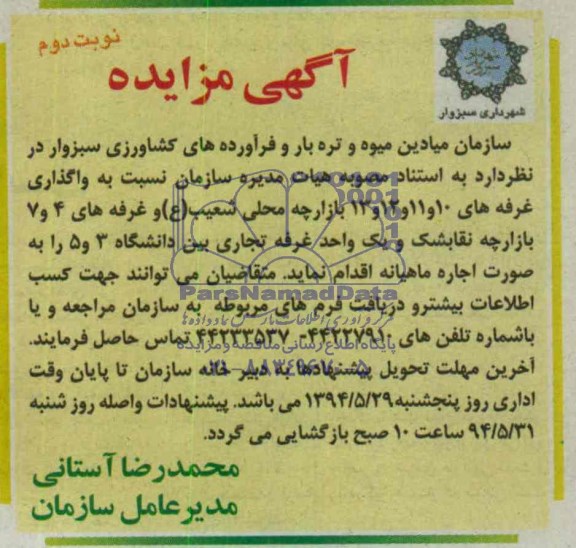 نوبت دوم
آگهی مزایده
شهرداری سبزوار
سازمان میادین میوه و تره بار و فرآورده های کشاورزی سبزوار در
نظردارد به استناد مصوبه هیات مدیره سازمان نسبت به واگذاری
غرفه های ۱۰و۱۱و۱۲و۱۳ بازارچه محلی شعیب(ع)و غرفه های ۴ و۷
بازارچه نقابشک و یک واحد غرفه تجاری بین دانشگاه ۳ و۵ را به
صورت اجاره ماهیانه اقدام نماید. متقاضیان می توانند جهت کسب
ParsNamadData
اطلاعات بیشترو دریافت فرم های مربوطه به سازمان مراجعه و یا
باشماره تلفن های ۴۴۲۲۷۹۱۰- ۴۴۲۳۳۵۳۷ تماس حاصل فرمایند.
پایگاه اطلاع رسانی مناقصه و مزایده
آخرین مهلت تحویل پیشنهادها به دبیر خانه سازمان تا پایان وقت
اداری روز پنجشنبه۱۳۹۴/۵/۲۹ می باشد. پیشنهادات واصله روز شنبه
۹۴/۵/۳۱ ساعت ۱۰ صبح بازگشایی می گردد.
محمدرضا آستانی
مدیرعامل سازمان